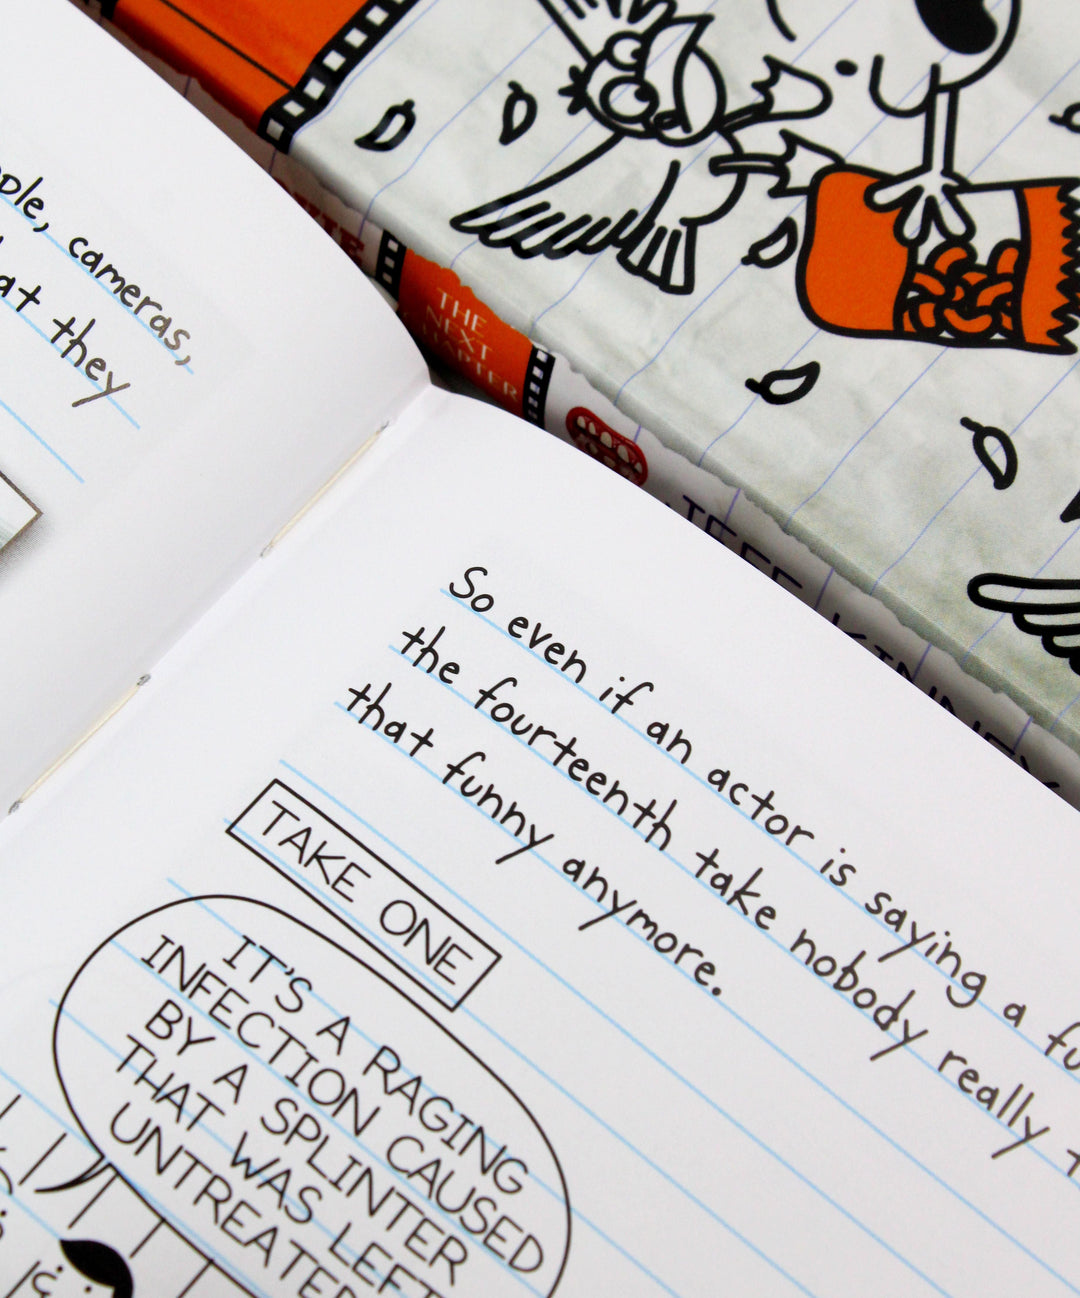 cameras,
they
THE
NEXT
CHAPTER
JEFF KINNEY
So even if an actor is saying a
the fourteenth take nobody really
that funny anymore.
TAKE ONE
IT'S A RAGING
INFECTION CAUSED
BY A SPLINTER
THAT WAS LEFT
UNTREATED